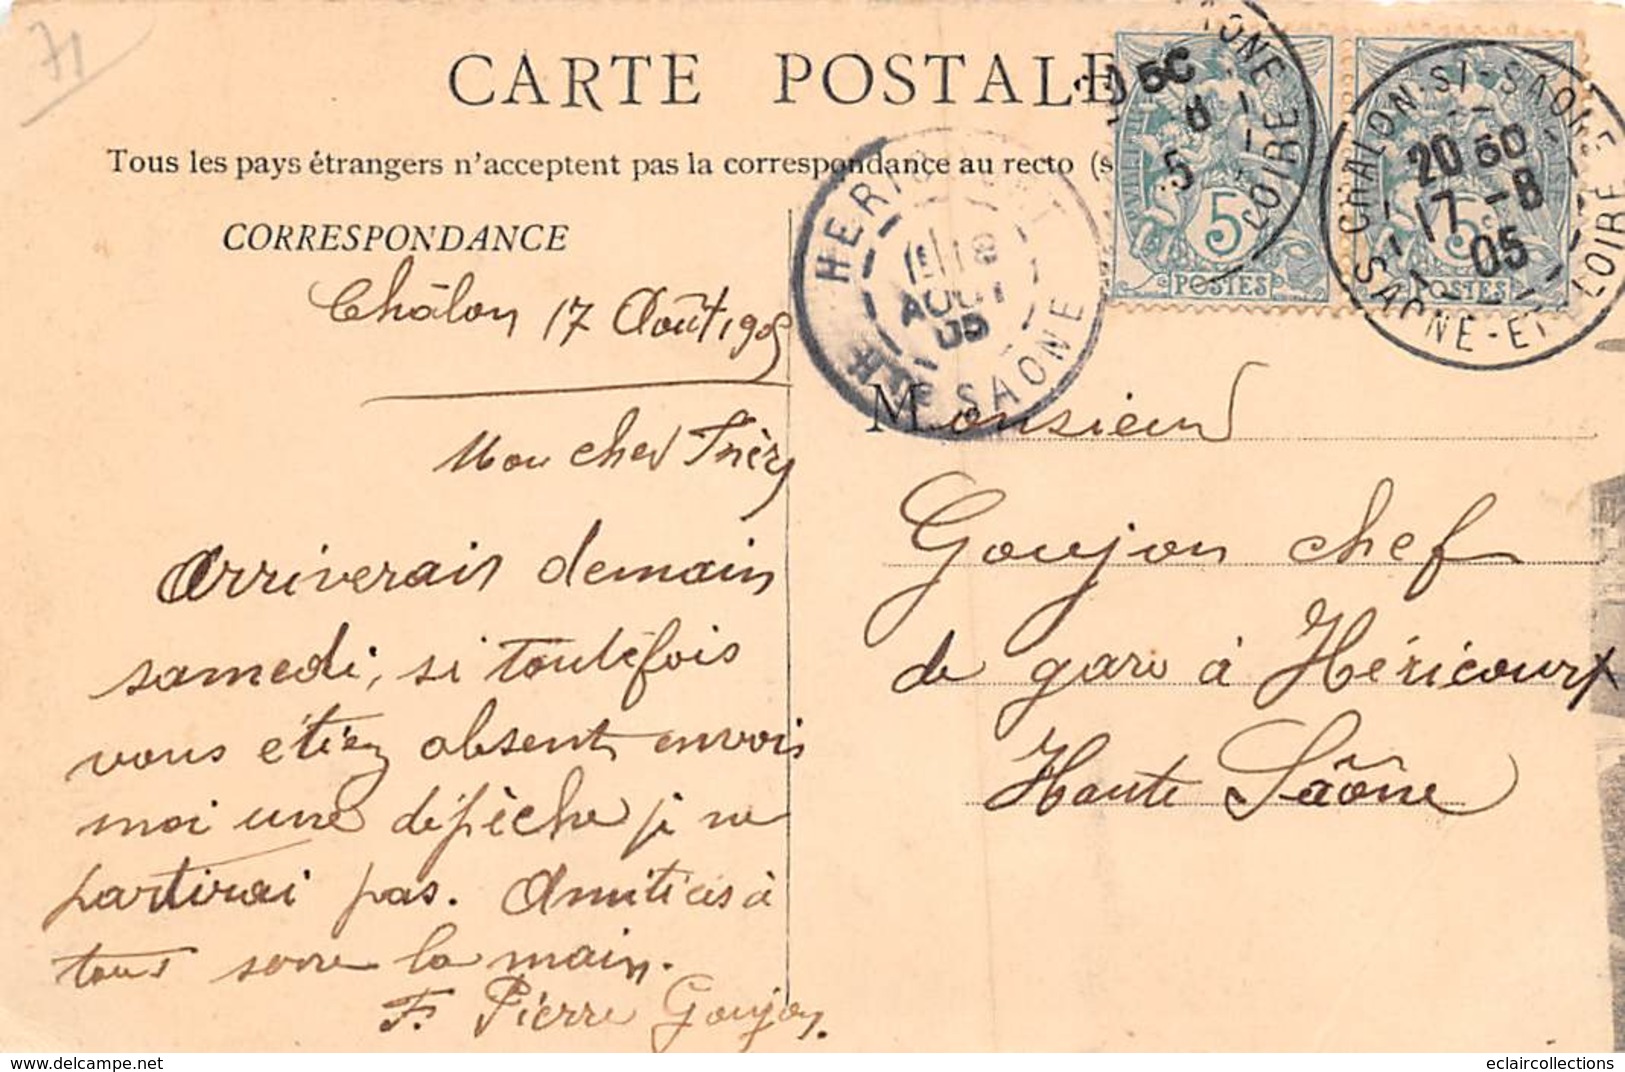 71
CARTE POSTALE
Tous les pays étrangers n'acceptent pas la correspondance au recto (s
CORRESPONDANCE
Châlon 17 Août 1905
Mon cher Frère
Arriverais demain
samedi, si toutefois
vous étiez absent envois
moi une dépèche je ne
partirai pas. Amitiés à
tous serre la main.
F. Pierre Goujon.
HERICOURT
18
AOUT
05
Hte SAONE
5
POSTES
8
5
LOIRE
CHALON-S/-SAONE
20 60
17 -8
05
SAONE-ET-LOIRE
5
POSTES
Monsieur
Goujon chef
de gare à Héricourt
Haute Saône
delcampe.net
eclaircollections